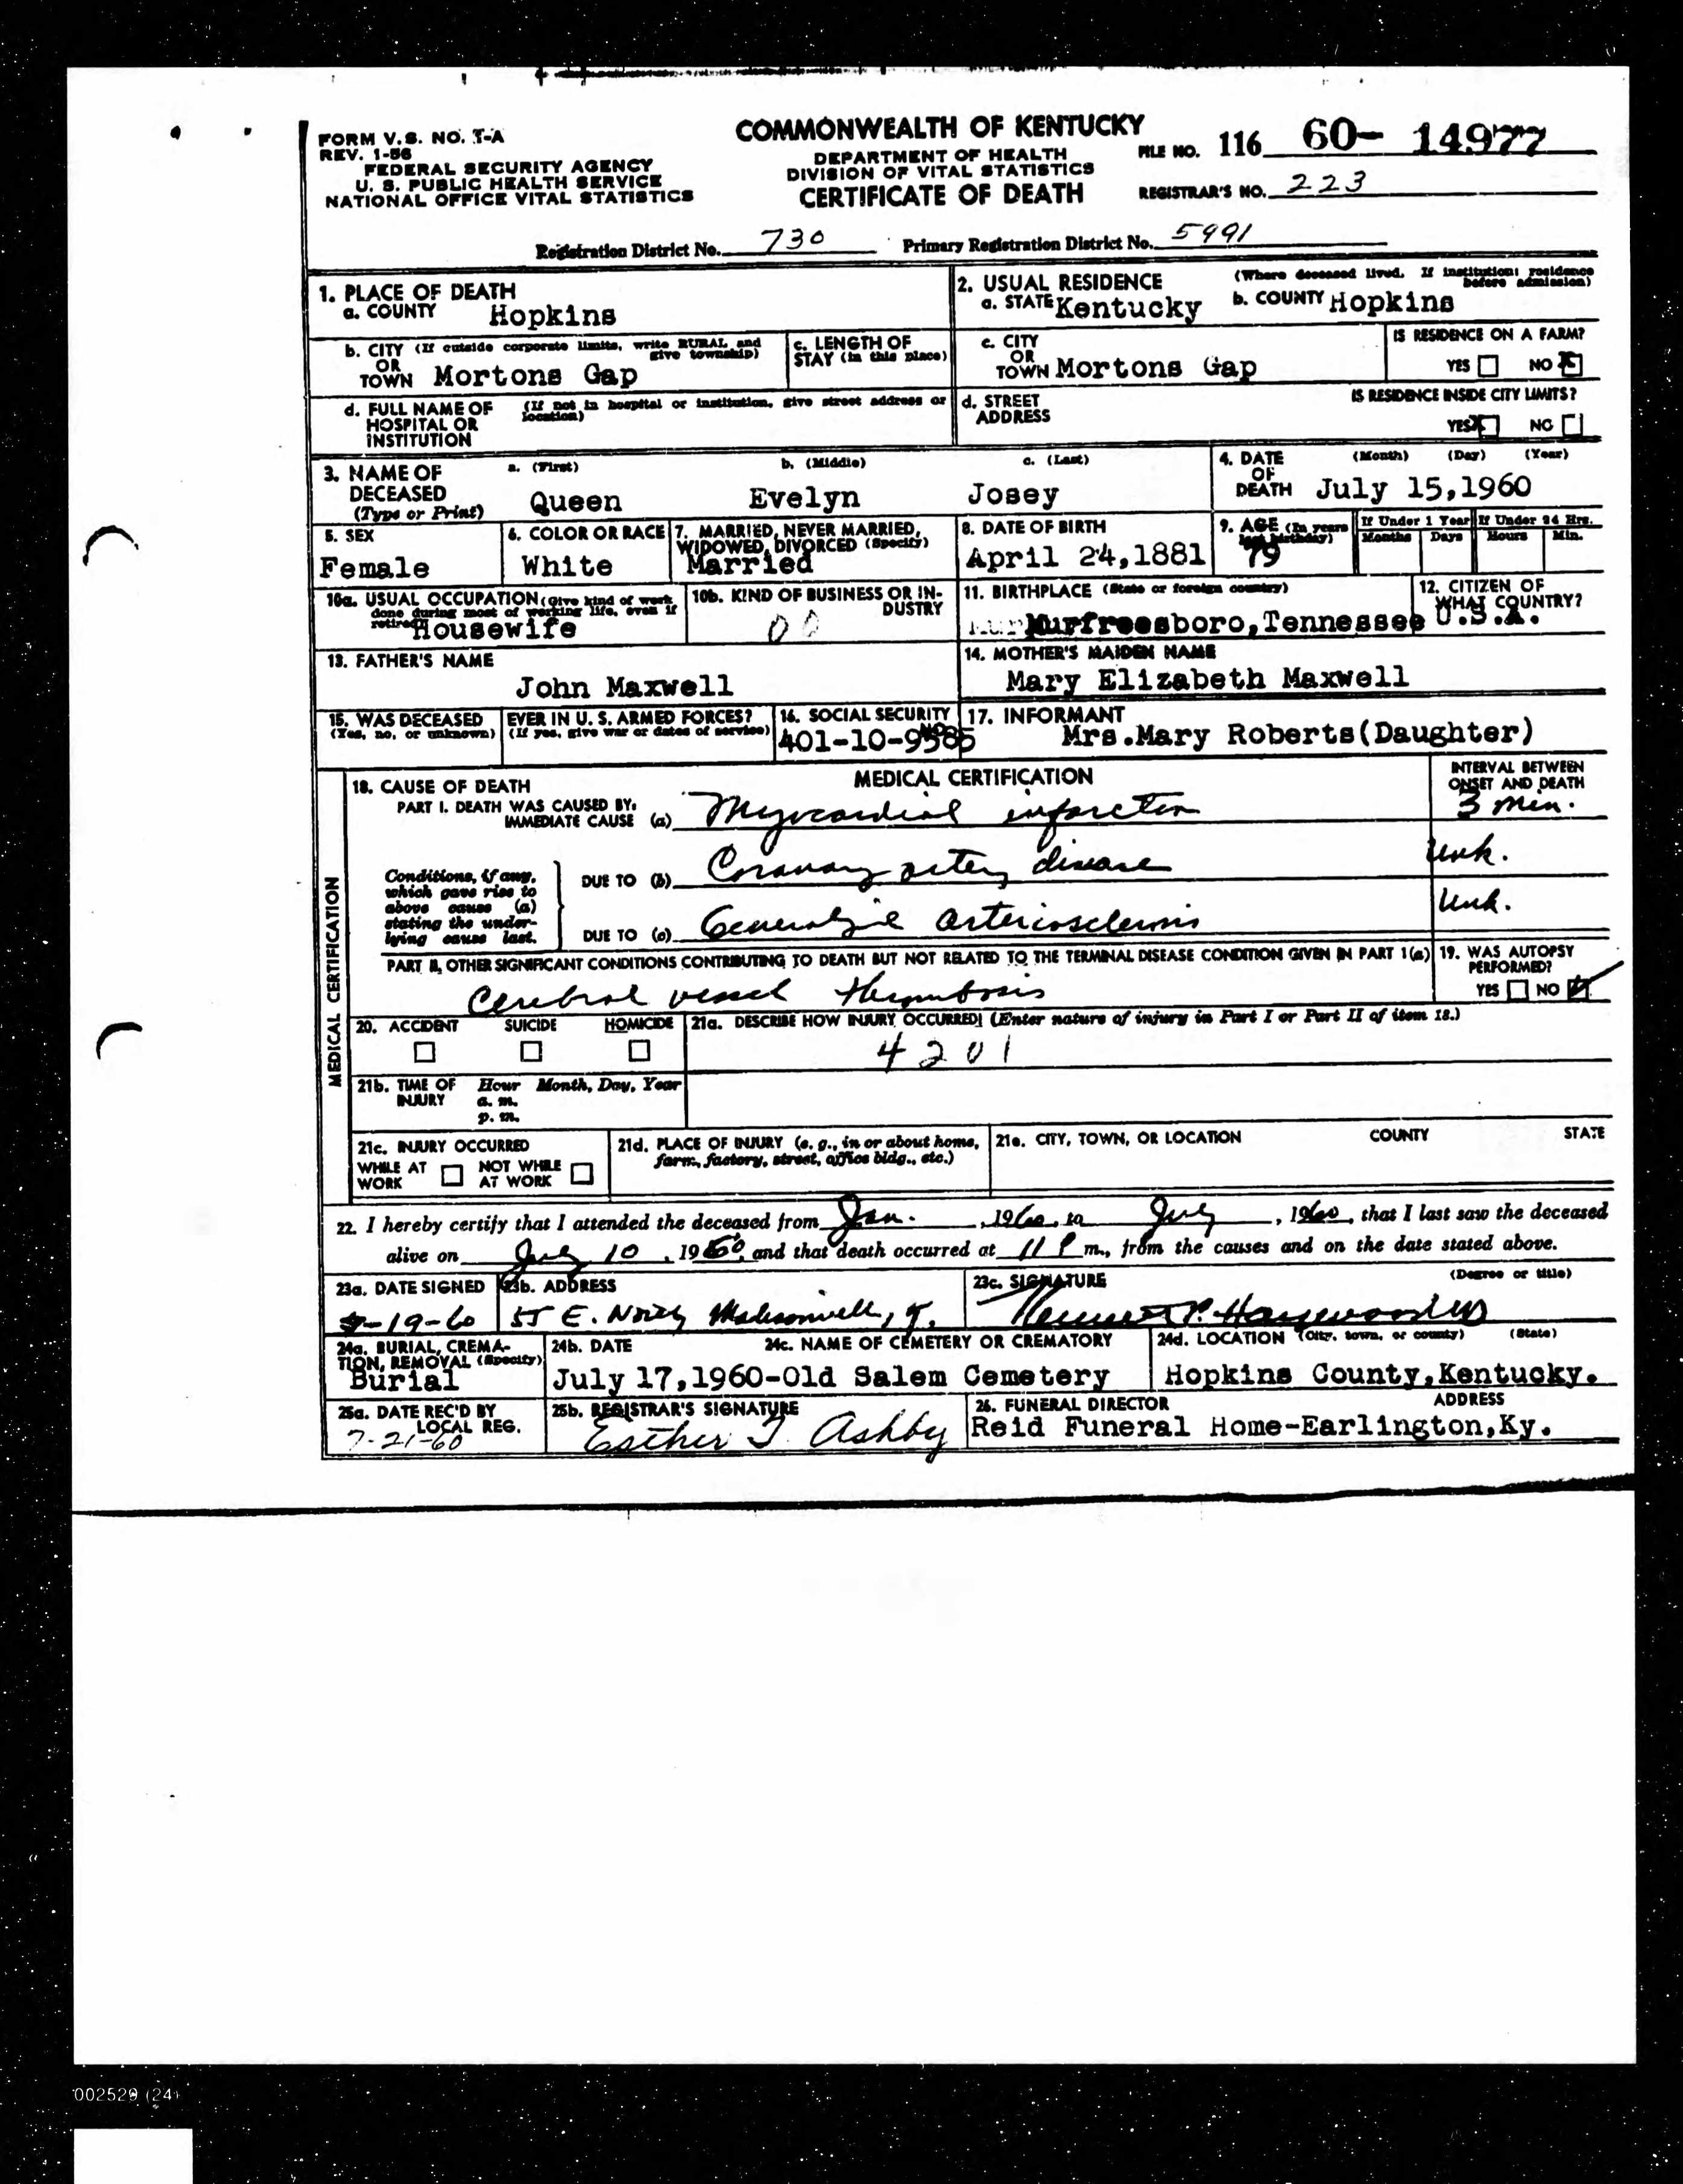 FORM V.S. NO. 1-A
REV. 1-56
FEDERAL SECURITY AGENCY
U. S. PUBLIC HEALTH SERVICE
NATIONAL OFFICE VITAL STATISTICS
COMMONWEALTH OF KENTUCKY
DEPARTMENT OF HEALTH
DIVISION OF VITAL STATISTICS
CERTIFICATE OF DEATH
FILE NO. 116 60- 14977
REGISTRAR'S NO. 223
Registration District No. 730 Primary Registration District No. 5991
1. PLACE OF DEATH
a. COUNTY Hopkins
2. USUAL RESIDENCE (Where deceased lived. If institution: residence before admission)
a. STATE Kentucky b. COUNTY Hopkins
b. CITY (If outside corporate limits, write RURAL and give township)
OR
TOWN Mortons Gap
c. LENGTH OF STAY (in this place)
c. CITY
OR
TOWN Mortons Gap
IS RESIDENCE ON A FARM?
YES NO X
d. FULL NAME OF HOSPITAL OR INSTITUTION (If not in hospital or institution, give street address or location)
d. STREET ADDRESS
IS RESIDENCE INSIDE CITY LIMITS?
YES X NO
3. NAME OF DECEASED (Type or Print)
a. (First) b. (Middle) c. (Last)
Queen Evelyn Josey
4. DATE OF DEATH (Month) (Day) (Year)
July 15,1960
5. SEX
Female
6. COLOR OR RACE
White
7. MARRIED, NEVER MARRIED, WIDOWED, DIVORCED (Specify)
Married
8. DATE OF BIRTH
April 24,1881
9. AGE (In years last birthday)
79
If Under 1 Year If Under 24 Hrs.
Months Days Hours Min.
10a. USUAL OCCUPATION (Give kind of work done during most of working life, even if retired)
Housewife
10b. KIND OF BUSINESS OR INDUSTRY
00
11. BIRTHPLACE (State or foreign country)
Murfreesboro,Tennessee
12. CITIZEN OF WHAT COUNTRY?
U.S.A.
13. FATHER'S NAME
John Maxwell
14. MOTHER'S MAIDEN NAME
Mary Elizabeth Maxwell
15. WAS DECEASED EVER IN U. S. ARMED FORCES?
(Yes, no, or unknown) (If yes, give war or dates of service)
16. SOCIAL SECURITY NO.
401-10-9585
17. INFORMANT
Mrs.Mary Roberts(Daughter)
MEDICAL CERTIFICATION
18. CAUSE OF DEATH
MEDICAL CERTIFICATION
INTERVAL BETWEEN ONSET AND DEATH
PART I. DEATH WAS CAUSED BY:
IMMEDIATE CAUSE (a) Myocardial infarction 3 min.
Conditions, if any, which gave rise to above cause (a) stating the underlying cause last.
DUE TO (b) Coronary artery disease Unk.
DUE TO (c) Generalized arteriosclerosis Unk.
PART II. OTHER SIGNIFICANT CONDITIONS CONTRIBUTING TO DEATH BUT NOT RELATED TO THE TERMINAL DISEASE CONDITION GIVEN IN PART 1(a)
Cerebral vessel thrombosis
19. WAS AUTOPSY PERFORMED?
YES NO
20. ACCIDENT SUICIDE HOMICIDE
21a. DESCRIBE HOW INJURY OCCURRED (Enter nature of injury in Part I or Part II of item 18.)
4201
21b. TIME OF INJURY Hour Month, Day, Year
a. m.
p. m.
21c. INJURY OCCURRED
WHILE AT WORK NOT WHILE AT WORK
21d. PLACE OF INJURY (e. g., in or about home, farm, factory, street, office bldg., etc.)
21e. CITY, TOWN, OR LOCATION COUNTY STATE
22. I hereby certify that I attended the deceased from Jan. , 1960, to July , 1960, that I last saw the deceased
alive on July 10 , 1960, and that death occurred at 11 P m., from the causes and on the date stated above.
23a. DATE SIGNED
7-19-60
23b. ADDRESS
55 E. North Madisonville, Ky.
23c. SIGNATURE (Degree or title)
P. Haywood MD
24a. BURIAL, CREMATION, REMOVAL (Specify)
Burial
24b. DATE 24c. NAME OF CEMETERY OR CREMATORY
July 17,1960-Old Salem Cemetery
24d. LOCATION (City, town, or county) (State)
Hopkins County,Kentucky.
25a. DATE REC'D BY LOCAL REG.
7-21-60
25b. REGISTRAR'S SIGNATURE
Esther T. Ashby
26. FUNERAL DIRECTOR ADDRESS
Reid Funeral Home-Earlington,Ky.
002529 (24)